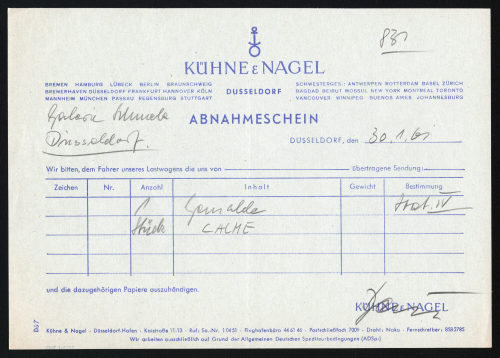 831
KÜHNE & NAGEL
BREMEN HAMBURG LÜBECK BERLIN BRAUNSCHWEIG
BREMERHAVEN DÜSSELDORF FRANKFURT HANNOVER KÖLN
MANNHEIM MÜNCHEN PASSAU REGENSBURG STUTTGART
DÜSSELDORF
SCHWESTERFIRMEN: ANTWERPEN ROTTERDAM BASEL ZÜRICH
BAGDAD BEIRUT MOSSUL NEW YORK MONTREAL TORONTO
VANCOUVER WINNIPEG BUENOS AIRES JOHANNESBURG
ABNAHMESCHEIN
Galerie Schmela
Düsseldorf.
DÜSSELDORF, den 30.1.61
Wir bitten, dem Fahrer unseres Lastwagens die uns von übertragene Sendung:
Zeichen Nr. Anzahl Inhalt Gewicht Bestimmung
1 Gemälde
Stück CALME
und die dazugehörigen Papiere auszuhändigen.
KÜHNE & NAGEL
D 67
Kühne & Nagel - Düsseldorf-Hafen - Kaistraße 11-13 - Ruf: Sa.-Nr. 10451 - Flughafenbüro 446146 - Postschließfach 7009 - Drahtw. Naku - Fernschreiber: 8582785
Wir arbeiten ausschließlich auf Grund der Allgemeinen Deutschen Spediteurbedingungen (ADSp.)